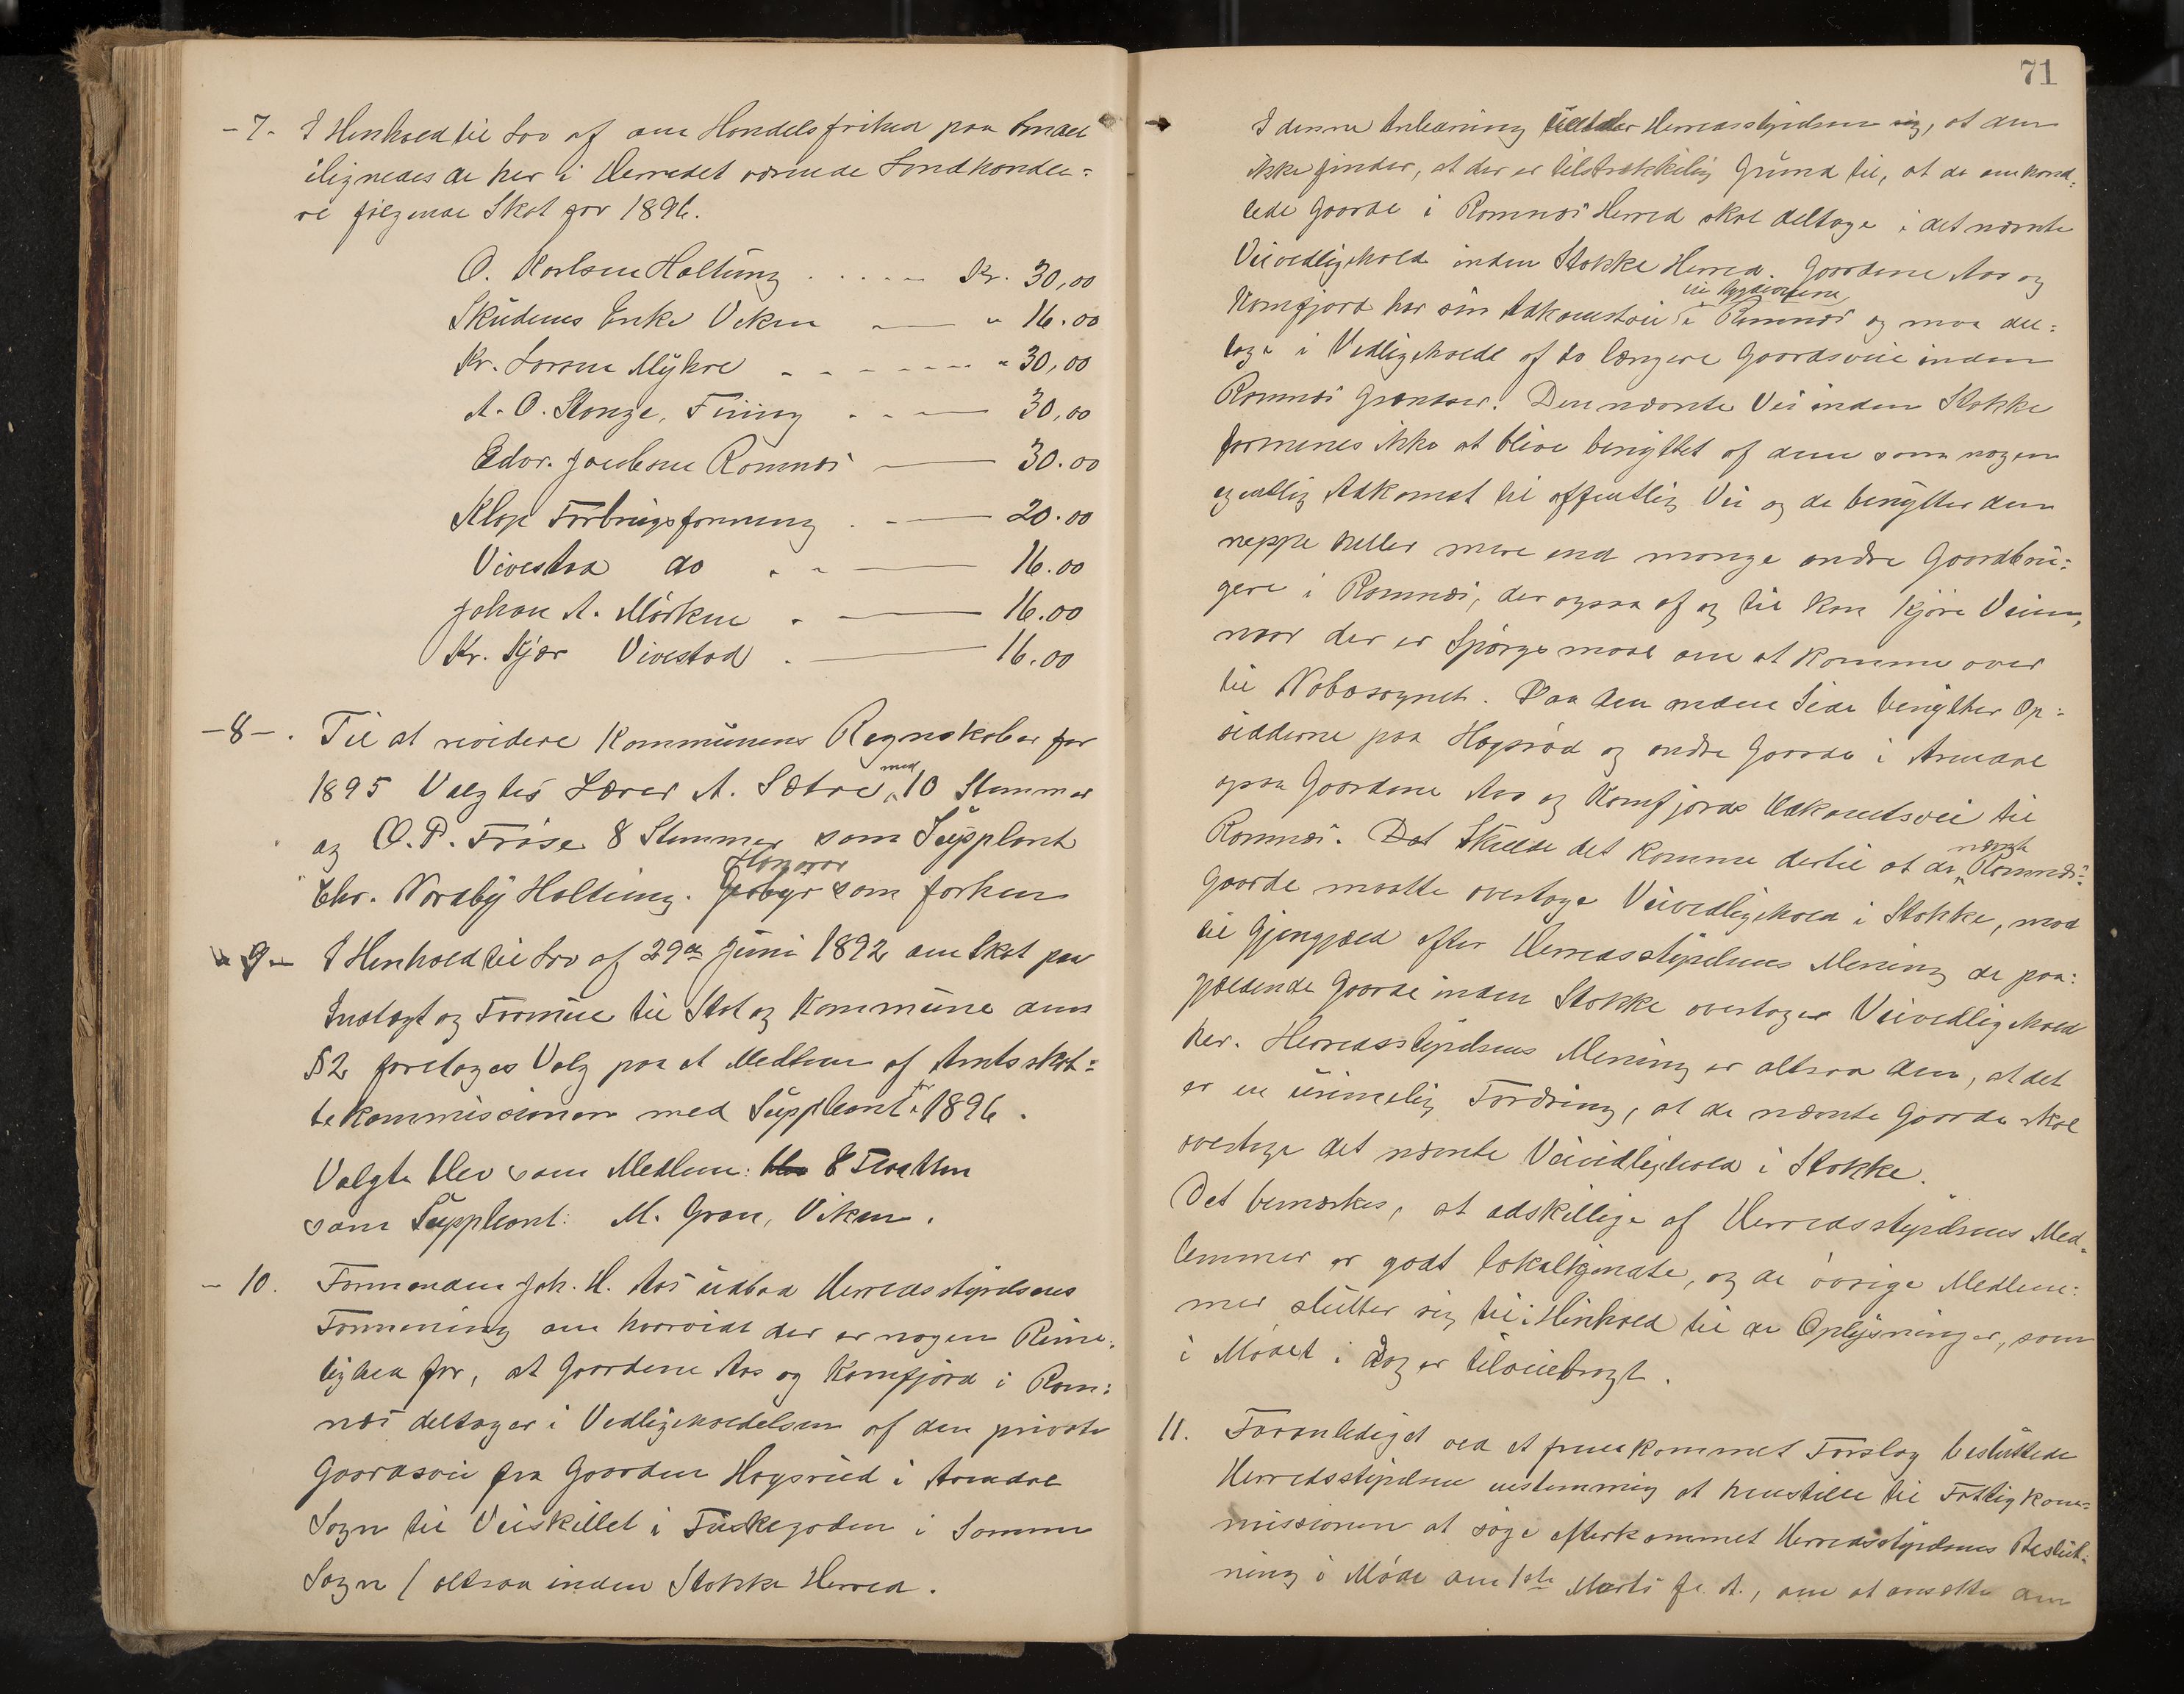 -7- I Henhold til Lov af om Handelsfrihed paa Smaal
ilignedes de her i Herredet værende Landhandle=
re følgende Skat for 1896.
O. Karlsen Holtung . . . . . Kr. 30,00
Skudenes Enke Viken — " 16.00
Kr. Larsen Myhre - - - - - " 30,00
A. O. Stange, - - — 30,00
Edv. Jacobsen Ramnæs — 30.00
Klop Forbrugsforening . - — 20.00
Vivestad do . - — 16.00
Johan A. Mørken . — 16.00
Kr. Kjær Vivestad . — 16.00
-8-. Til at revidere Kommunens Regnskaber for
1895 Valgtes Lærer A. Sætre med 10 Stemmer
og O. P. Frøse 8 Stemmer som Suppleant
Chr. Nordby Holtung. Honorar som forhen
9- I Henhold til Lov af 29de Juni 1892 om Skat paa
Indtægt og Formue til Stat og Kommune dens
§2 foretages Valg paa et Medlem af Amtsskat=
tekommissionen med Suppleant for 1896.
Valgte blev som Medlem: E Flaatten
som Suppleant: M. Gran, Viken.
- 10. Formanden Joh. H. Aas udbad Herredsstyrelsens
Formening om hvorvidt der er nogen Rime=
lighed for, at Gaardene Aas og Kornfjord i Ram=
næs deltager i Vedligeholdelsen af den private
Gaardsvei fra Gaarden Høgsrud i Arendal
Sogn til Veiskillet i i
Sogn (altsaa inden Stokke Herred.
71
I denne Anledning Herredsstyrelsen, at den
ikke finder, at der er tilstrækkelig Grund til, at de omhand=
lede Gaarde i Ramnæs Herred skal deltage i det nævnte
Veivedligehold inden Stokke Herred. Gaardene Aas og
til Bygdeveiene
Kornfjord har sin Adkomstvei i Ramnæs og maa del=
tage i Vedligehold af to længere Gaardsveie inden
Ramnæs Grændser. Den nævnte Vei inden Stokke
formenes ikke at blive benyttet af dem som nogen
egentlig Adkomst til offentlig Vei og de benytter den
neppe heller mere end mange andre Gaardbru=
gere i Ramnæs, der ogsaa af og til kan kjøre Veien,
naar der er Spørgsmaal om at komme over
til Nabosognet. Paa den anden Side benytter Op=
sidderne paa Høgsrød og andre Gaarde i Arendal
ogsaa Gaardene Aas og Kornfjords Adkomstvei til
Ramnæs. Skulde det komme dertil at de nævnte Ramnæs=
Gaarde maatte overtage Veivedligehold i Stokke, maa
til Gjengjæld efter Herredsstyrelsens Mening de paa=
gjældende Gaarde inden Stokke overtager Veivedligehold
her. Herredsstyrelsens Mening er altsaa den, at det
er en urimelig Fordring, at de nævnte Gaarde skal
overtage det nævnte Veivedligehold i Stokke.
Det bemærkes, at adskillige af Herredsstyrelsens Med=
lemmer er godt lokalkjendte, og de øvrige Medlem=
mer slutter sig til i Henhold til de Oplysninger, som
i Mødet i Dag er tilveiebragt.
11. Foranlediget ved et fremkommet Forslag besluttede
Herredsstyrelsen enstemmig at henstille til Fattigkom=
missionen at søge efterkommet Herredsstyrelsens Beslut=
ning i Møde den 1ste Marts f. A., om at ansætte en